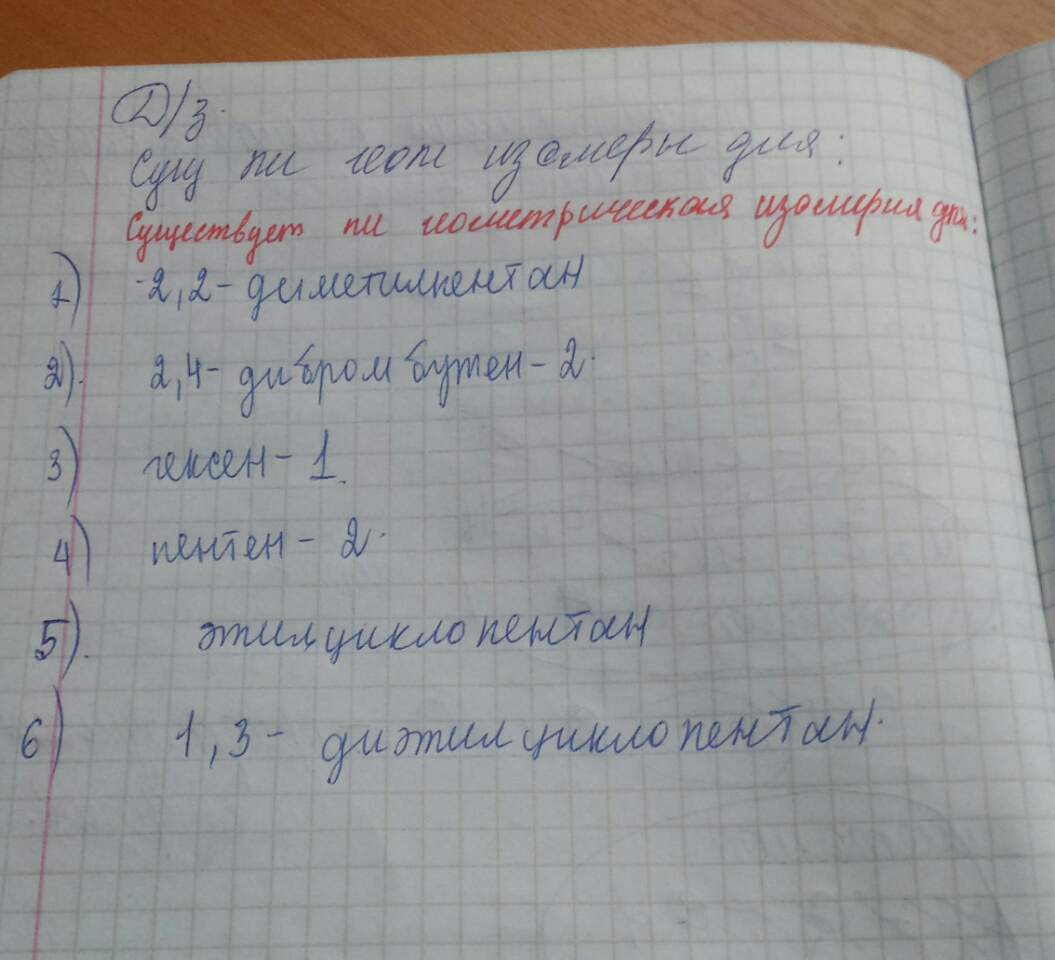 Д/з.
Сущ ли геом изомеры для:
Существует ли геометрическая изомерия для:
1) 2,2-диметилпентан
2). 2,4-дибромбутен-2.
3) гексен-1.
4) пентен-2.
5). этилциклопентан
6) 1,3-диэтилциклопентан.